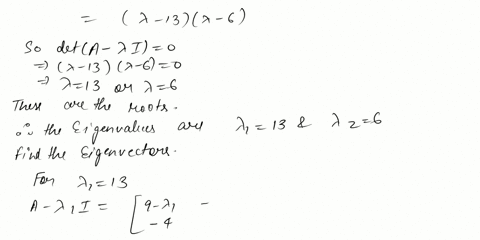 = (λ-13)(λ-6)
So det(A-λI)=0
⇒ (λ-13)(λ-6)=0
⇒ λ=13 or λ=6
These are the roots.
∴ the Eigenvalues are λ₁=13 & λ₂=6
find the Eigenvectors.
For λ₁=13
A-λ₁I = [9-λ₁ -
-4